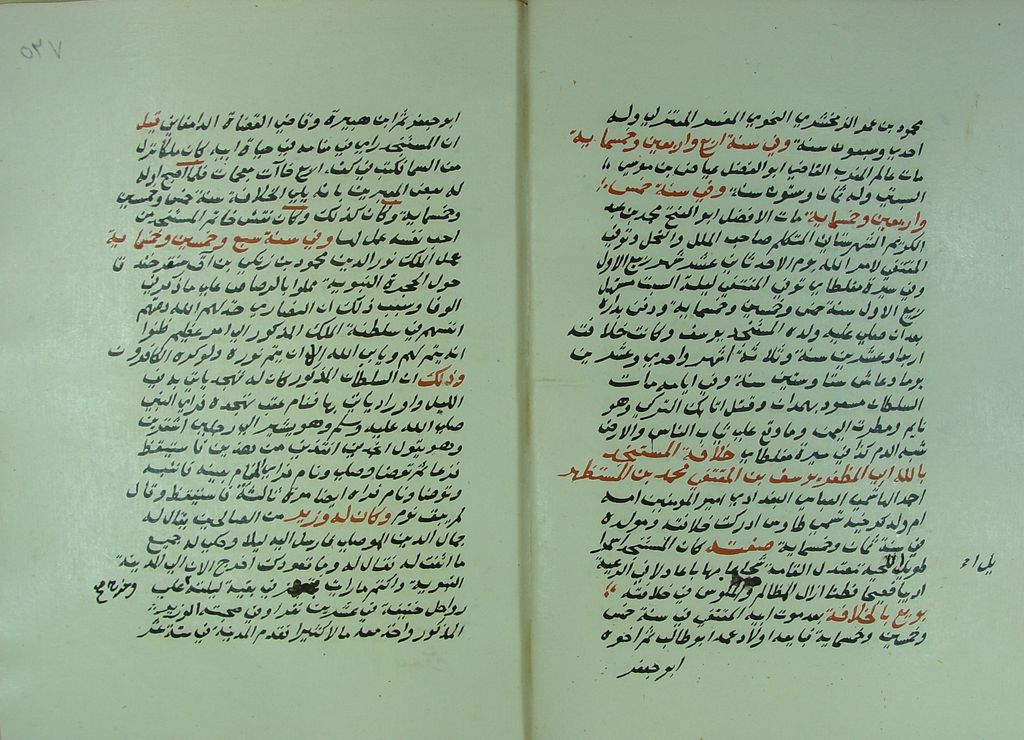 محمود بن عمر الزمخشري النحوي المفسر المعتزلي وله
احدي وسبعون سنة وفي سنة اربع واربعين وخمسماية
مات عالم المغرب القاضي ابو الفضل عياض بن موسي
السبتي وله ثمان وستون سنة وفي سنة خمس
واربعين وخمسماية مات الافضل ابو الفتح محمد بن عبد
الكريم الشهرستاني المتكلم صاحب الملل والنحل وتوفي
المقتفي لامر الله يوم الاحد ثاني عشر شهر ربيع الاول
وفي سيرة مغلطاي توفي المقتفي ليلة السبت مستهل
ربيع الاول سنة خمس وخمسين وخمسماية ودفن بداره
بعد ان صلي عليه ولده المستنجد يوسف وكانت خلافته
اربعا وعشرين سنة وثلاثة اشهر واحدي وعشرين
يوما وعاش ستا وستين سنة وفي ايامه مات
السلطان مسعود بهمدان وقتل اتابك التركي وهو
نايم ومطرت اليمن وما وقع علي ثياب الناس والارض
شبه الدم كذا في سيرة مغلطاي خلافة المستنجد
بالله ابي المظفر يوسف بن المقتفي محمد بن المستظهر
احمد الهاشمي العباسي البغدادي امير المومنين امه
ام ولد كرجية تسمي طاوس ادركت خلافته ومولده
في سنة ثمان وخمسماية صفته كان المستنجد اسمرا
طويل اللحية معتدل القامة شجاعا مهابا عادلا في الرعية
اديبا فصيحا فطنا ازال المظالم والمكوس في خلافته
بويع بالخلافة بعد موت ابيه المقتفي في سنة خمس
وخمسين وخمسماية فبايعه اولاد عمه ابو طالب ثم اخوه
ابو جعفر
٥٣٧
ابو جعفر ثم ابن هبيرة وقاضي القضاة الدامغاني قيل
ان المستنجد راي في منامه في حياة ابيه كان ملكا نزل
من السما فكتب في كفه اربع خاآت معجمات فلما اصبح اوله
له بعض المعبرين بانه يلي الخلافة سنة خمس وخمسين
وخمسماية وكان كذلك وكان نقش خاتم المستنجد من
احب نفسه عمل لها وفي سنة سبع وخمسين وخمسماية
عمل الملك نور الدين محمود بن زنكي بن اق سنقر خندقا
حول الحجرة النبوية مملوا بالرصاص علي ما ذكر في
الوفا وسبب ذلك ان النصاري خذلهم الله دعتهم
انفسهم في سلطنة الملك المذكور الي امر عظيم ظنوا
انه يتم لهم ويابي الله الا ان يتم نوره ولو كره الكافرون
وذلك ان السلطان المذكور كان له تهجد ياتي به في
الليل واوراد ياتي بها فنام عقب تهجده فراي النبي
صلي الله عليه وسلم وهو يشير الي رجلين اشقرين
وهو يقول انجدني انقذني من هذين فاستيقظ
فزعا ثم توضا وصلي ونام فراي المنام بعينه فانتبه
وتوضا ونام فراه ايضا مرة ثالثة فاستيقظ وقال
لم يبق نوم وكان له وزير من الصالحين يقال له
جمال الدين الموصلي فارسل اليه ليلا وحكي له جميع
ما اتفق له فقال له وما قعودك اخرج الان الي المدينة
النبوية واكتم ما رايت في بقية ليلته علي
رواحل خفيفة في عشرين نفرا وفي صحبته الوزير
المذكور واخذ معه مالا كثيرا فقدم المدينة في ستة عشر